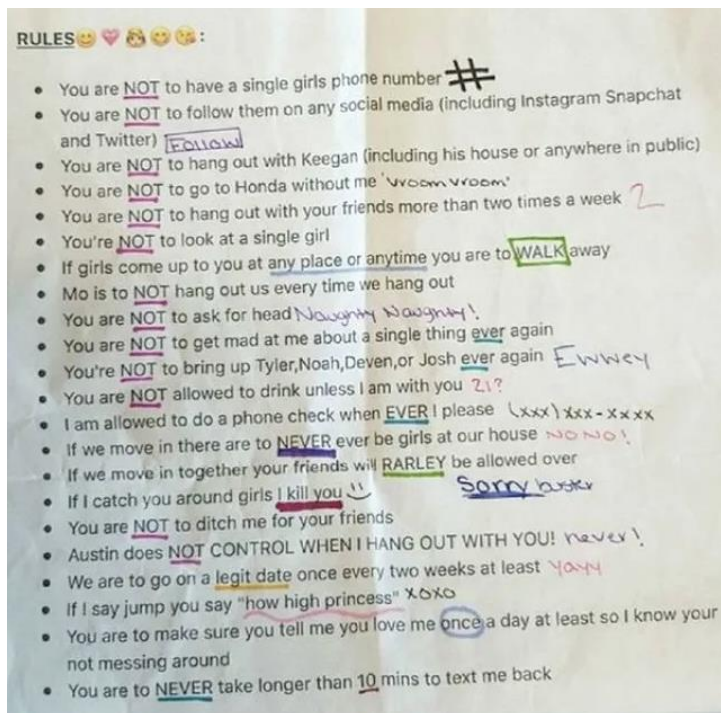 RULES😊💗👸😋😘:
• You are NOT to have a single girls phone number #
• You are NOT to follow them on any social media (including Instagram Snapchat
and Twitter) Follow
• You are NOT to hang out with Keegan (including his house or anywhere in public)
• You are NOT to go to Honda without me 'vroom vroom'
• You are NOT to hang out with your friends more than two times a week 2
• You're NOT to look at a single girl
• If girls come up to you at any place or anytime you are to WALK away
• Mo is to NOT hang out us every time we hang out
• You are NOT to ask for head Naughty Naughty!
• You are NOT to get mad at me about a single thing ever again
• You're NOT to bring up Tyler,Noah,Deven,or Josh ever again Ewwey
• You are NOT allowed to drink unless I am with you 21?
• I am allowed to do a phone check when EVER I please (xxx)xxx-xxxx
• If we move in there are to NEVER ever be girls at our house NO NO!
• If we move in together your friends will RARLEY be allowed over
Sorry buster
• If I catch you around girls I kill you :)
• You are NOT to ditch me for your friends
• Austin does NOT CONTROL WHEN I HANG OUT WITH YOU! never!
• We are to go on a legit date once every two weeks at least Yayy
• If I say jump you say "how high princess" XOXO
• You are to make sure you tell me you love me once a day at least so I know your
not messing around
• You are to NEVER take longer than 10 mins to text me back